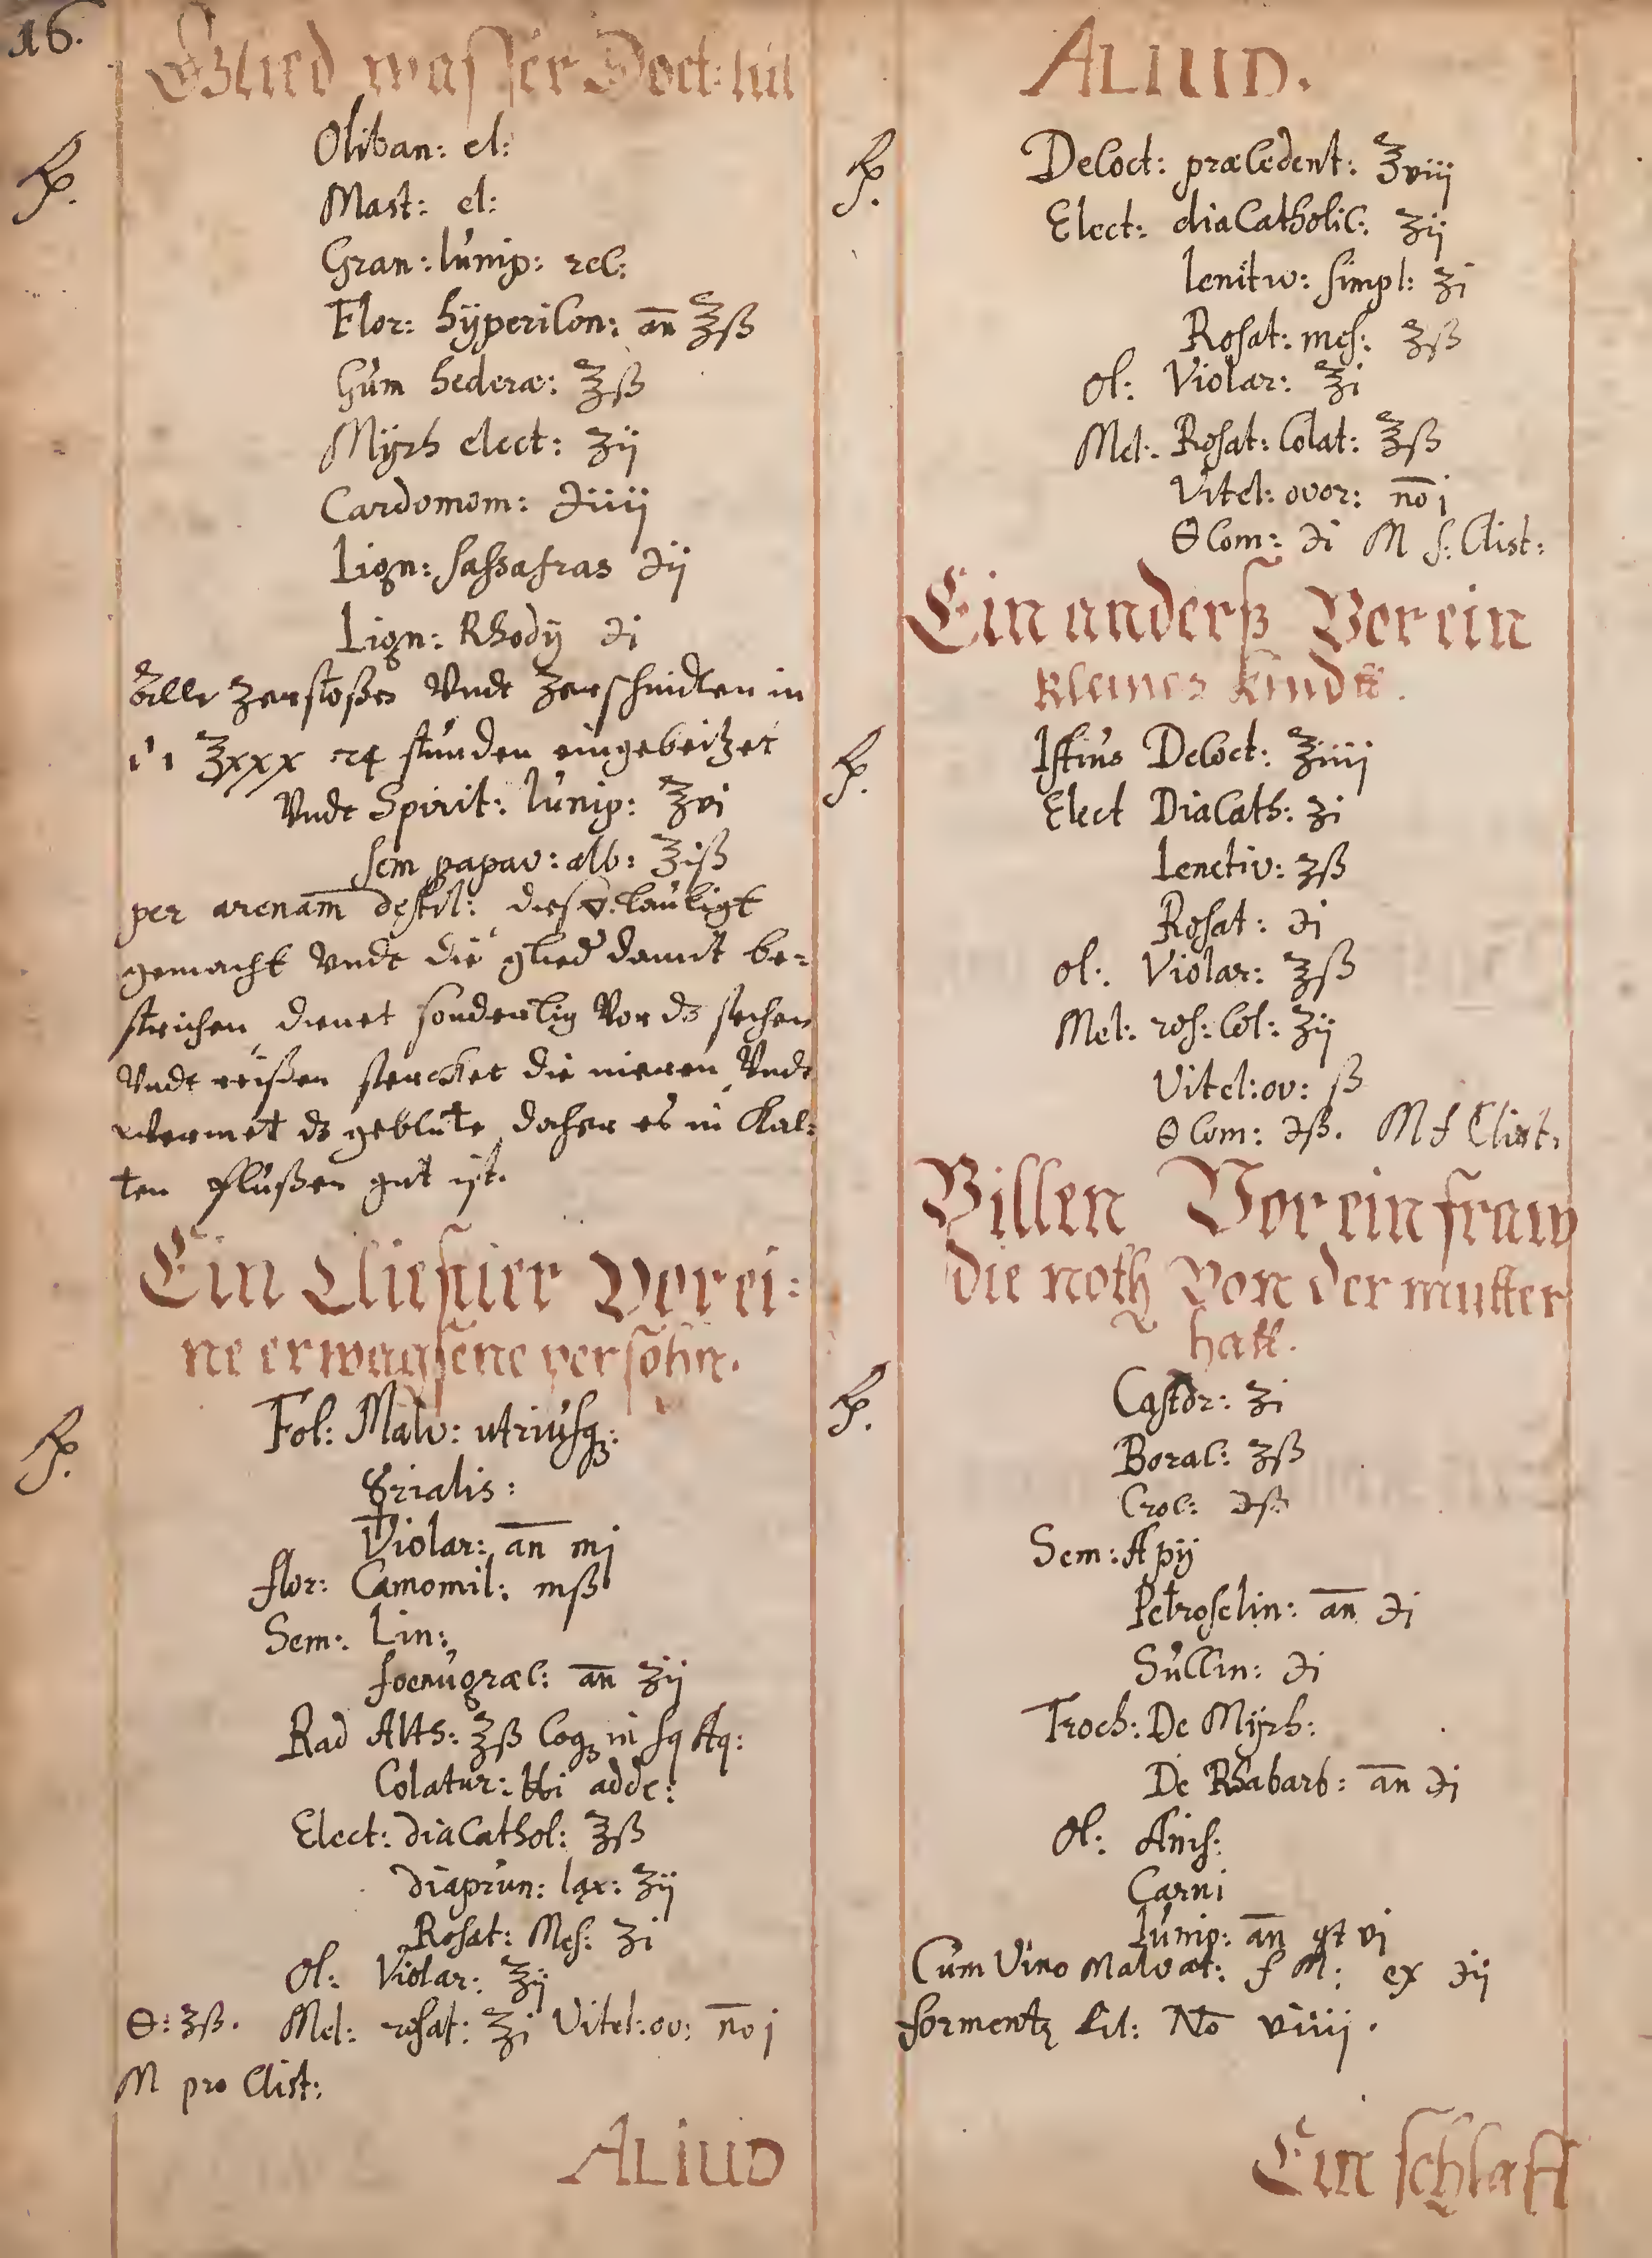 16.
Glied wasser Doct: lül
℞.
Oliban: el:
Mast: el:
Gran: Iunip: rec:
Flor: hÿpericon: an̄ ℥ß
Gum hederæ: ℥ß
Mÿrh elect: ʒij
Cardomom: ℈iiij
Lign: sassafras ℈ij
Lign: Rhodij ℈i
alles zerstoßen Vndt zerschnidten in
℥xxx 24 stunden eingebeitzet
Vndt Spirit: Iunip: ℥vi
sem papav: alb: ℥iß
per arenam̄ destil: dies laulligt
gemacht Vndt die glied damit be=
strichen, dienet sonderlig Vor ds stechen
Vndt reißen stercket die nieren Vndt
wermet ds geblüte, daher es in Kal=
ten flüßen gut ist.
Ein Cliestier Vor ei:
ne erwagsene persohn.
℞.
Fol: Malv: utriusq:
Violar: an̄ mi
flor: Camomil: mß
Sem: Lin:
foenugræc: an̄ ʒij
Rad Alth: ℥ß Coq in sq Aq:
Colatur: ℔i adde:
Elect: diaCathol: ℥ß
diaprun: lax: ʒij
Rosat: Mes: ʒi
Ol: Violar: ℥ij
Θ: ʒß. Mel: rosat: ℥i Vitel: ov: nō j
M pro Clist:
ALIUD
ALIUD.
℞.
Decoct: præcedent: ℥viij
Elect: diaCatholic: ʒij
lenitiv: simpl: ʒi
Rosat: mes: ʒß
Ol: Violar: ℥i
Mel: Rosat: Colat: ℥ß
Vitel: ovor: nō j
Θ Com: ℈i M f: Clist:
Ein anderß Vor ein
kleines Kindtt.
℞.
Istius Decoct: ℥iiij
Elect DiaCath: ʒi
Lenetiv: ʒß
Rosat: ℈i
Ol: Violar: ℥ß
Mel: ros: Col: ʒij
Vitel: ov: ß
Θ Com: ℈ß. M f Clist:
Pillen Vor ein fraw
die noth Von der mutter
hatt.
℞.
Castor: ʒi
Borac: ʒß
Croc: ℈ß
Sem: Apij
Petroselin: an̄ ℈i
Succin: ℈i
Troch: De Mÿrh:
De Rhabarb: an̄ ℈i
Ol: Anis:
Carni
Iunip: an̄ gt vi
Cum Vino Malvat: f M: ex ℈ij
formentz Lil: No viiij.
Ein schlaff